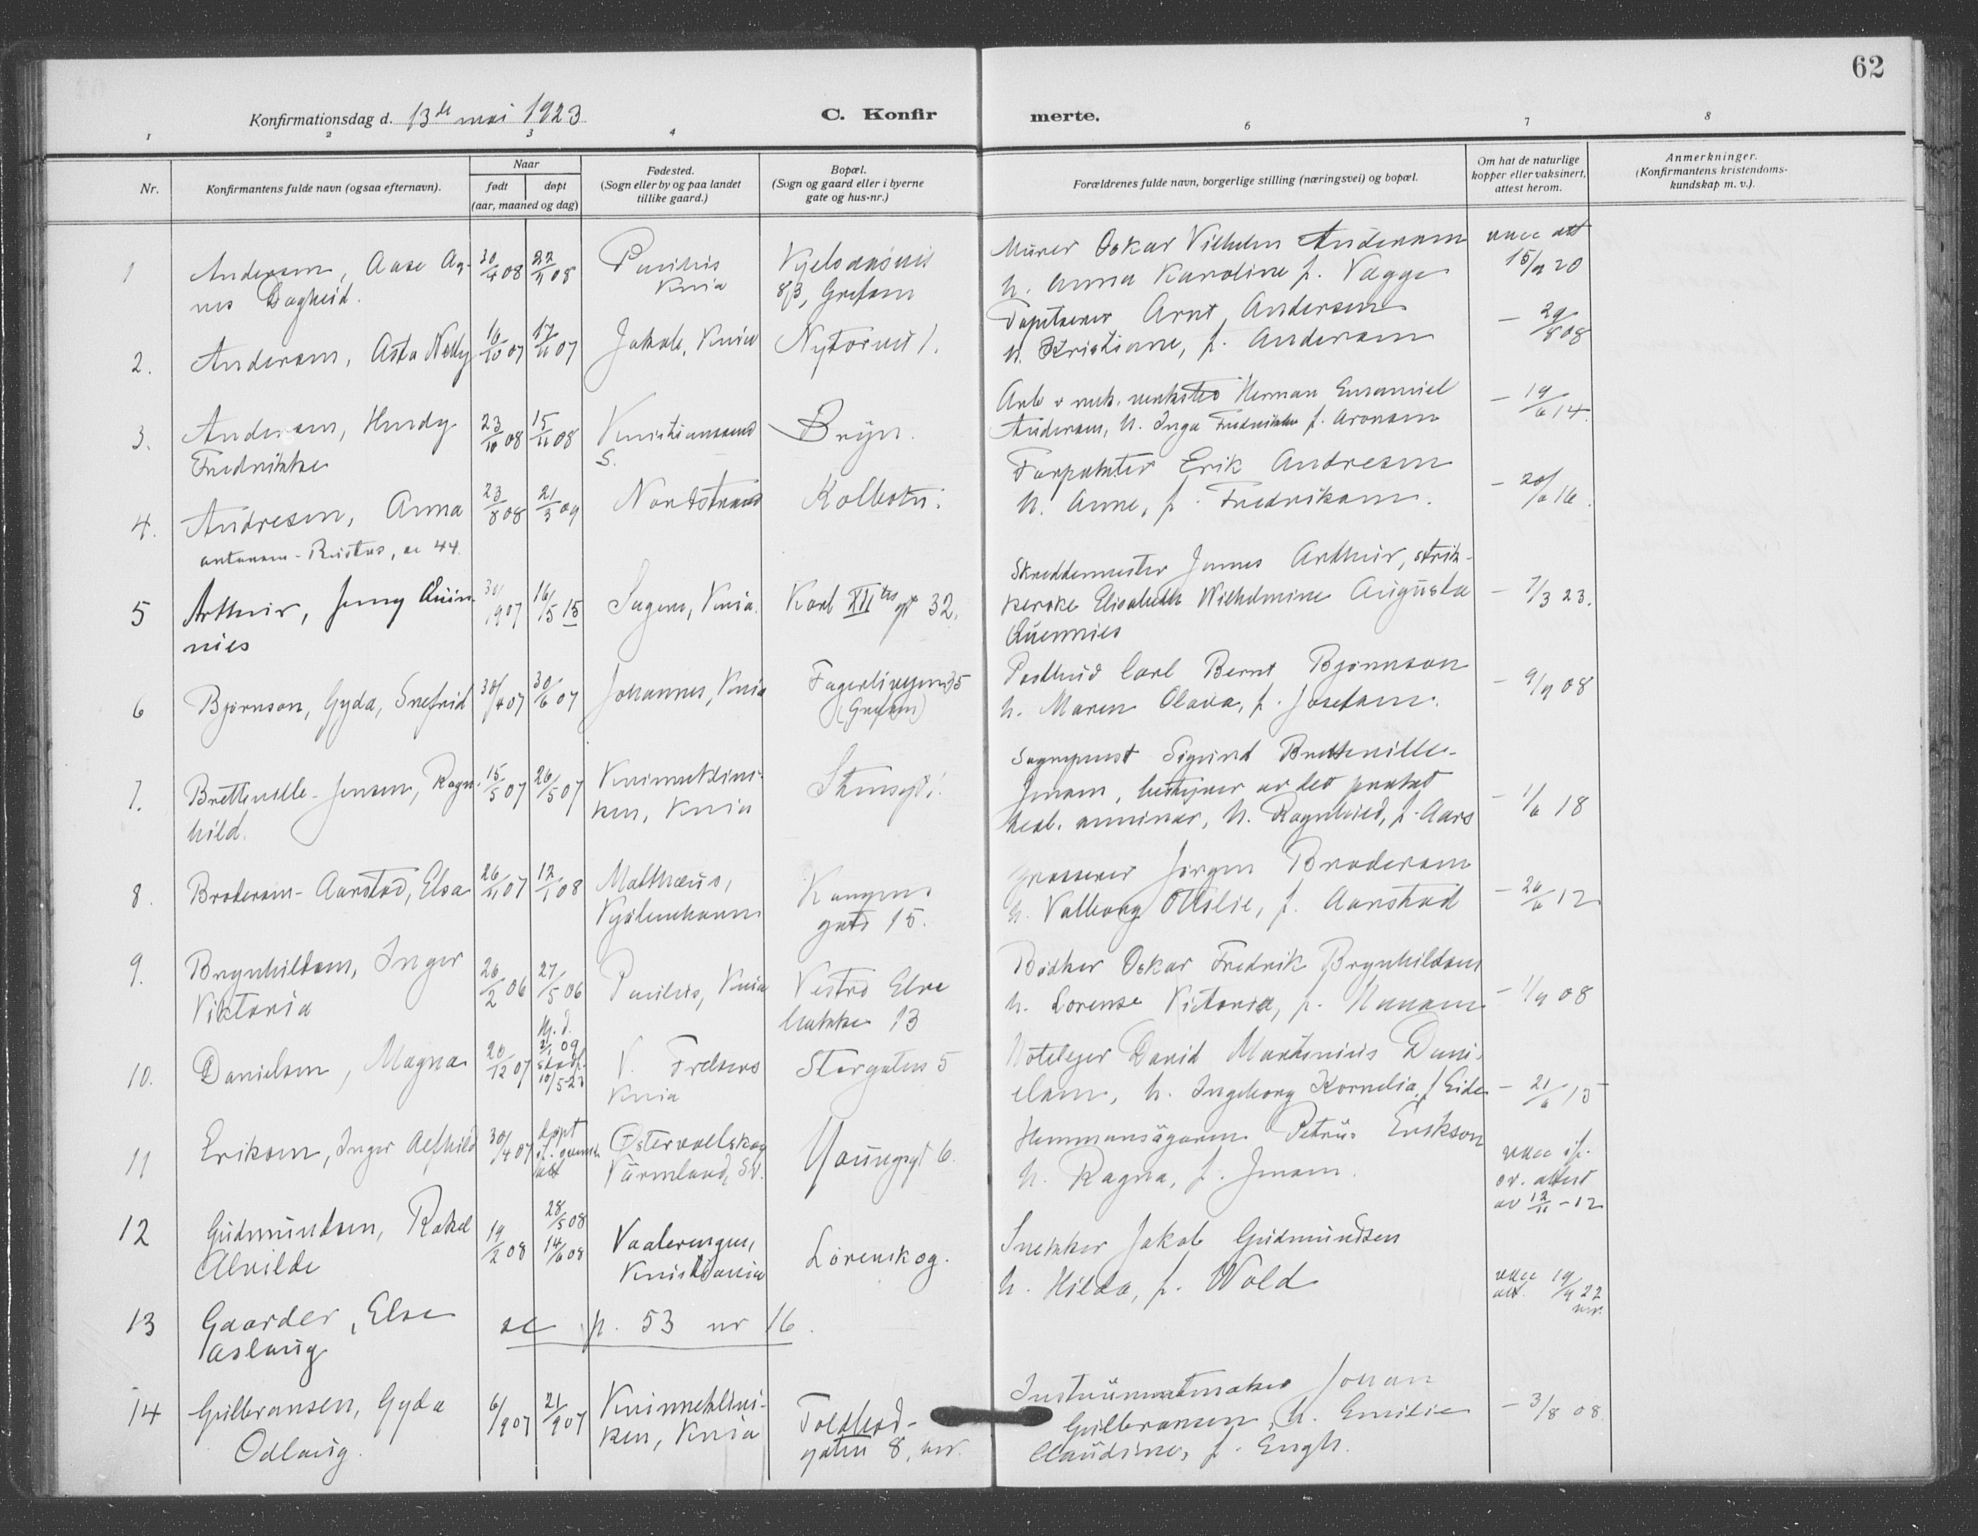 62
Konfirmationsdag d. 13de mai 1923
C. Konfir merte.
1 2 3 4 6 7 8
Nr.
Konfirmantens fulde navn (ogsaa efternavn).
Naar
født døpt
(aar, maaned og dag)
Fødested.
(Sogn eller by og paa landet
tillike gaard.)
Bopæl.
(Sogn og gaard eller i byerne
gate og hus-nr.)
Forældrenes fulde navn, borgerlige stilling (næringsvei) og bopæl.
Om hat de naturlige
kopper eller vaksinert,
attest herom.
Anmerkninger.
(Konfirmantens kristendoms-
kundskap m. v.).
1 Andersen, Aase Ag-
nes Dagheid.
30/4 08
Paulus
Knia
Kjelsåsveis
83, Grefsen
Murer Oskar Vilhelm Andersen
h. Anna Karoline f. Vagge
vacc att
15/9 20
2. Andersen, Asta Nelly
16/10 07 17/11 07
Jakob, Knia
Nytorvet 1.
Tapetserer Arnt Andersen
h. Kristiane, f. Andersen
- 29/8 08
3. Andersen, Herdy
Fredrikke
23/10 08 15/11 08
Kristiansand
S.
Bryn.
Arb v mek. verksted Herman Emanuel
Andersen, h. Inga Fredrikke f. Aronsen
- 19/6 14
4. Andresen, Anna
antonsen - Ristus, se 44.
23/8 08 21/3 09
Nordstrand
Kolbotn.
Forpakter Erik Andresen
h. Anne, f. Fredriksen.
- 20/6 16.
5 Arthur, Jenny Quen-
nies
30/9 07 16/5 15
Sagene, Knia.
Karl XIItes gt 32.
Skreddermester James Arthur, strik-
kerske Elisabeth Wilhelmine Augusta
Quennies
- 7/3 23.
6 Bjørnson, Gyda, Snefrid
30/4 07 30/6 07
Johannes, Knia
Fagerliveyen 35
(Grefsen)
Postbud Carl Bernt Bjørnson
h. Maren Olava, f. Josefsen.
- 9/9 08
7. Bretteville-Jensen, Ragn-
hild.
15/5 07 26/5 07
Kvinneklinik-
ken, Knia
Stensgt.
Sogneprest Sigurd Bretteville-
Jensen, bestyrer av det prakt
teol. seminar, h. Ragnhild, f. Aars
- 1/6 18
8. Brodersen-Aarstad, Elsa
26/11 07 12/1 08
Matthæus,
Kjøbenhavn
Kongens
gate 15.
Grosserer Jørgen Brodersen
h. Valborg Ottilie, f. Aarstad
- 20/6 12
9. Brynhildsen, Inger
Viktoria
26/2 06 27/5 06
Paulus, Knia
Vestre Elve
bakke 13
Bødker Oskar Fredrik Brynhildsen
h. Lorense Victoria, f. Hansen
- 1/9 08
10. Danielsen, Magna
20/12 07
hj. d.
2/1 09
stadf.
10/5-23
V. Frelsers
Knia
Storgaten 5
Hoteleier David Martinius Dani-
elsen, h. Ingeborg Kornelia, f Eide
- 21/6 15
11 Eriksen, Inger Alfhild
30/4 07
døpt
Østervallskog
Värmland, Sv.
Youngsgt 6.
Hemmansägaren Petrus Erikson
h. Ragna, f. Jensen.
vacc if.
sv. attest
av 12/11-12
12 Gudmundsen, Rakel
Alvilde
19/2 08
28/5 08
14/6 08
Vaalerengen,
Kristiania
Lørenskog.
Snekker Jakob Gudmundsen
h. Hilda, f. Wold
vacc
att. 19/9 22
13 Gaarder, Else
Aslaug
se p. 53 nr 16.
14 Gulbransen, Gyda
Odlaug.
6/9 07 21/9 07
Kvinneklini-
ken, Knia
Toldbod-
gaten 8,
Instrumentmaker Johan
Gulbransen, h. Emilie
Claudine, f. Engh.
- 3/8 08